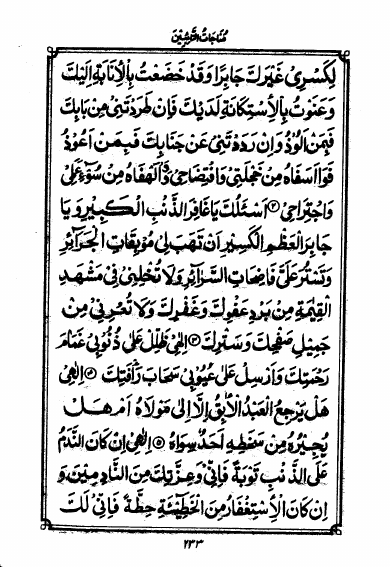 مُنَاجَاتُ التَّائِبِيْنَ
لِكَسْرِیْ غَيْرَكَ جَابِرًا وَقَدْ خَضَعْتُ بِالْاِنَابَةِ اِلَيْكَ
وَعَنَوْتُ بِالْاِسْتِكَانَةِ لَدَيْكَ فَاِنْ طَرَدْتَنِیْ مِنْ بَابِكَ
فَبِمَنْ اَلُوْذُ وَاِنْ رَدَدْتَّنِیْ عَنْ جَنَابِكَ فَبِمَنْ اَعُوْذُ
فَوَا اَسَفَاهُ مِنْ خَجْلَتِیْ وَافْتِضَاحِیْ وَالَهْفَاهُ مِنْ سُوْٓءِ عَمَلِیْ
وَاجْتِرَاحِیْ ۞ اَسْئَلُكَ يَا غَافِرَ الذَّنْبِ الْكَبِيْرِ وَيَا
جَابِرَ الْعَظْمِ الْكَسِيْرِ اَنْ تَهَبَ لِیْ مُوْبِقَاتِ الْجَرَآئِرِ
وَتَسْتُرَ عَلَیَّ فَاضِحَاتِ السَّرَآئِرِ وَلَا تُخْلِنِیْ فِیْ مَشْهَدِ
الْقِيٰمَةِ مِنْ بَرْدِ عَفْوِكَ وَغَفْرِكَ وَلَا تُعْرِنِیْ مِنْ
جَمِيْلِ صَفْحِكَ وَسَتْرِكَ ۞ اِلٰهِیْ ظَلِّلْ عَلٰی ذُنُوْبِیْ غَمَامَ
رَحْمَتِكَ وَاَرْسِلْ عَلٰی عُيُوْبِیْ سَحَابَ رَاْفَتِكَ ۞ اِلٰهِیْ
هَلْ يَرْجِعُ الْعَبْدُ الْاٰبِقُ اِلَّا اِلٰی مَوْلَاهُ اَمْ هَلْ
يُجِيْرُهٗ مِنْ سَخَطِهٖ اَحَدٌ سِوَاهُ ۞ اِلٰهِیْ اِنْ كَانَ النَّدَمُ
عَلَی الذَّنْبِ تَوْبَةً فَاِنِّیْ وَعِزَّتِكَ مِنَ النَّادِمِيْنَ وَ
اِنْ كَانَ الْاِسْتِغْفَارُ مِنَ الْخَطِيْٓئَةِ حِطَّةً فَاِنِّیْ لَكَ
۲۳۳